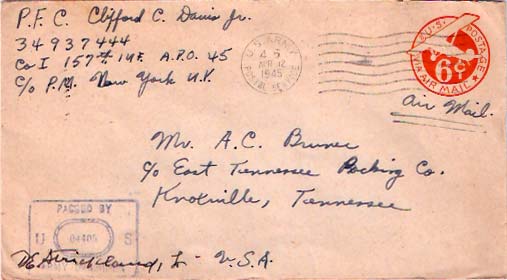 P.F.C. Clifford C. Davis Jr.
34937444
Co I 157th INF. A.P.O. 45
C/o P.M. New York N.Y.
U.S. ARMY
APR 12
1945
POSTAL SERVICE
U.S. POSTAGE
6¢
VIA AIR MAIL
Air Mail.
Mr. A.C. Bruner
c/o East Tennessee Packing Co.
Knoxville, Tennessee
PASSED BY
U 04405 S
ARMY EXAMINER
Strickland, Lt U.S.A.